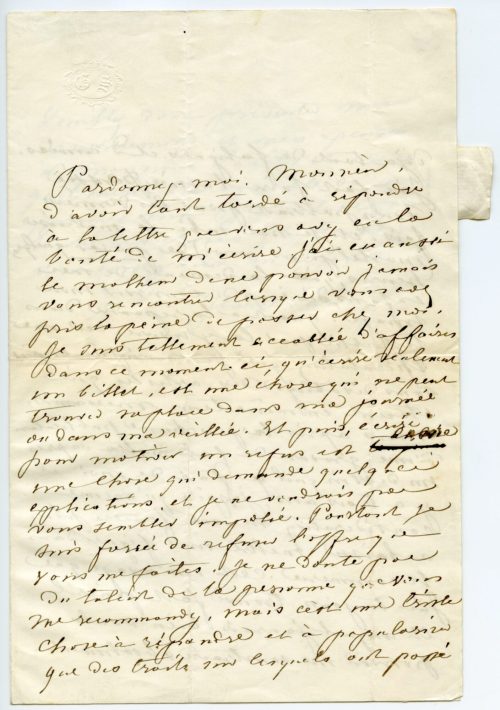 Pardonnez-moi, Monsieur,
d'avoir tant tardé à répondre
à la lettre que vous avez eu la
bonté de m'écrire. j'ai eu aussi
le malheur de ne pouvoir jamais
vous rencontrer lorsque vous avez
pris la peine de passer chez moi.
Je suis tellement accablée d'affaires
dans ce moment ci, qu'écrire seulement
un billet, est une chose qui ne peut
trouver sa place dans ma journée
ou dans ma veillée. Et puis, écrire
pour motiver un refus est
une chose qui demande quelque
explications, et je ne voudrois pas
vous sembler impolie. Pourtant je
suis forcée de refuser l'offre que
vous me faites. je ne doute pas
du talent de la personne que vous
me recommandez, mais c'est une triste
chose à répandre et à populariser
que des traits sur lesquels ont passé